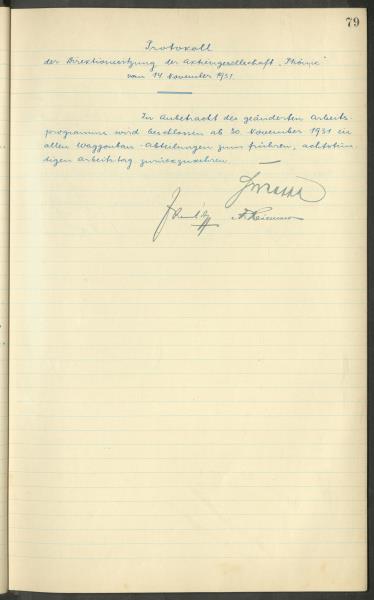 79
Protokoll
der Direktionssitzung der Aktiengesellschaft „Phönix“
vom 14 November 1931
In Anbetracht des geänderten Arbeits-
programms wird beschlossen ab 30. November 1931 in
allen Waggonbau-Abteilungen zum frühren, achtstün-
digen Arbeitstag zurückzukehren.